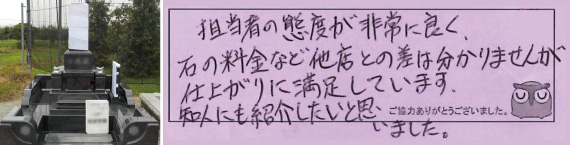 担当者の態度が非常に良く、
石の料金など他店との差は分かりませんが
仕上がりに満足しています。
知人にも紹介したいと思
いました。
ご協力ありがとうございました。